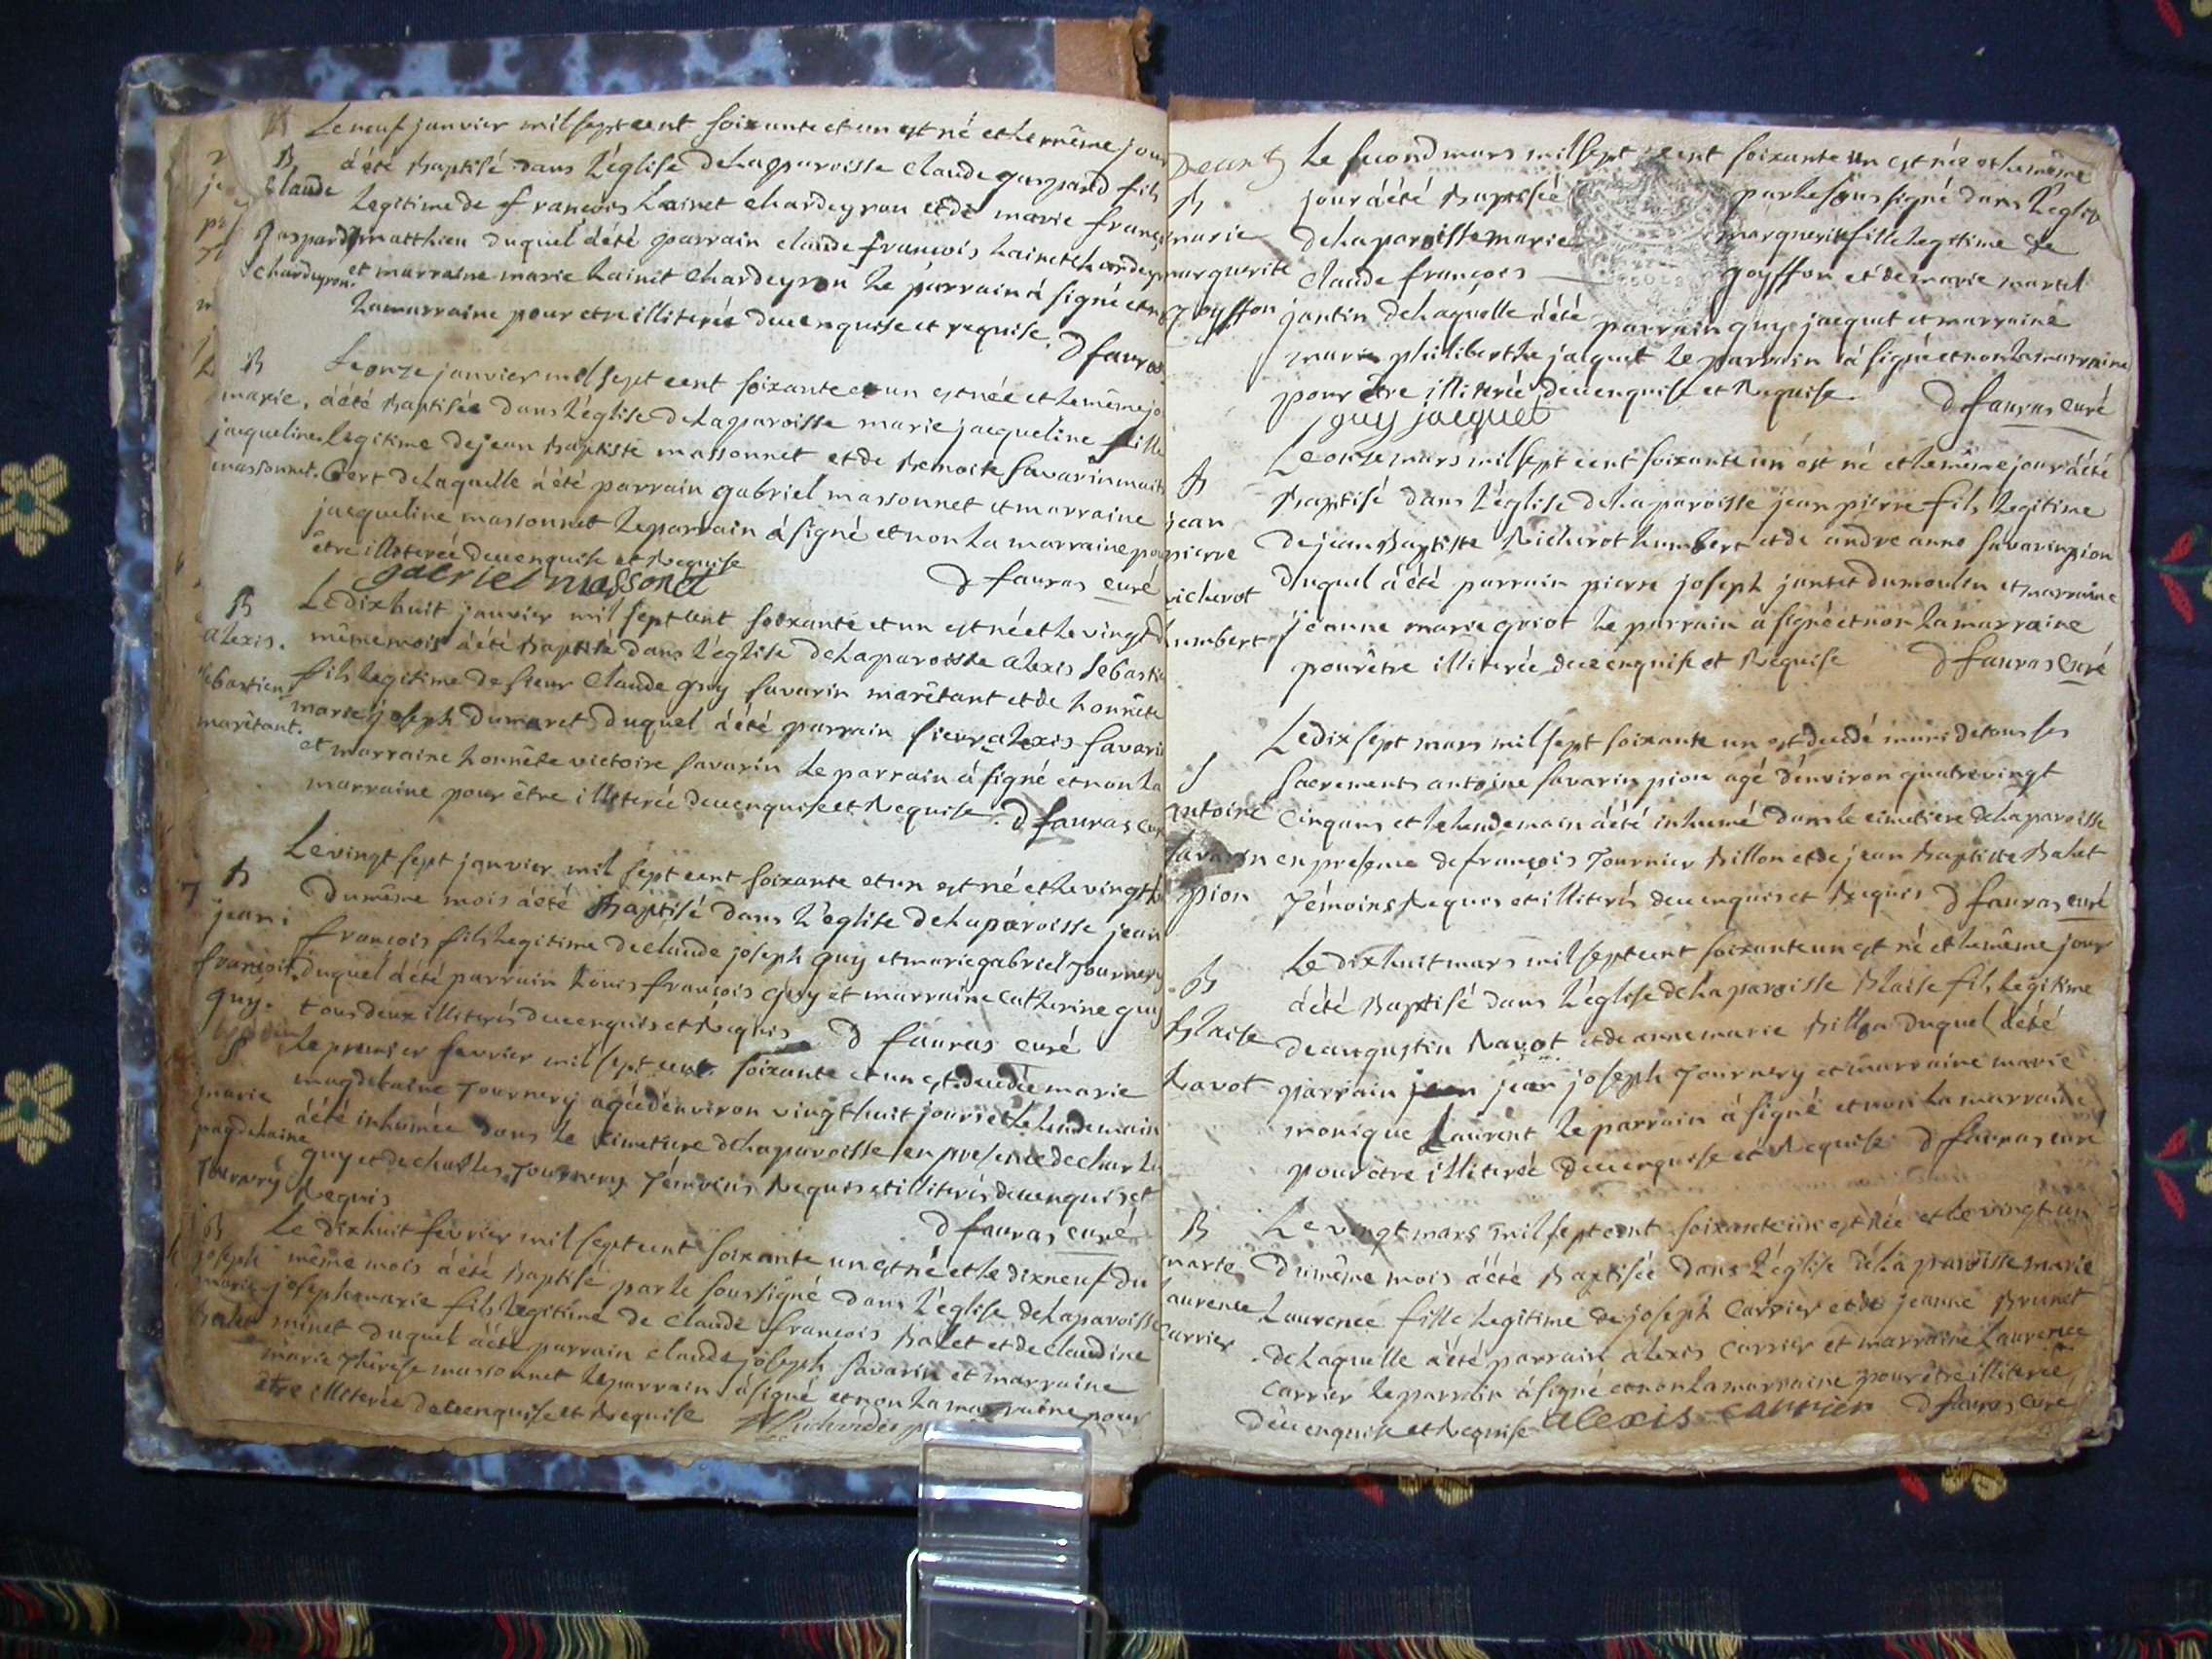 Le neuf janvier mil sept cent soixante et un est né et le même jour
B
Claude
gaspard
chardeyron.
a été baptisé dans l'église de la paroisse Claude gaspard fils
legitime de françois Lainet chardeyron et de marie
matthieu duquel a été parrain claude françois Lainet
et marraine marie Lainet chardeyron le parrain a signé et
la marraine pour etre illiterée deuenquise et requise. D fauras
B
marie
jacqueline
massonnet.
Le onze janvier mil sept cent soixante et un est née et le même
a été baptisée dans l'église de la paroisse marie jacqueline fille
legitime de jean baptiste massonnet et de benoite savarin
de laquelle a été parrain gabriel massonnet et marraine
jacqueline massonnet le parrain a signé et non la marraine
être illiterée deuenquise et Requise
gabriel massonet
D fauras curé
B
alexis.
sebastien
marêtant.
Le dixhuit janvier mil sept cent soixante et un est né et le vingt
même mois a été baptisé dans l'église de la paroisse alexis
fils legitime de sieur Claude guy savarin marêtant et de honnête
marie joseph dumaret duquel a été parrain sieur alexis
et marraine honnête victoire savarin le parrain a signé et non la
marraine pour être illiterée deuenquise et Requise. D fauras
B
jean
françois
guy.
Le vingt sept janvier mil sept cent soixante et un est né et le vingt
du même mois a été baptisé dans l'église de la paroisse jean
françois fils legitime de claude joseph guy et marie gabriel Tournery
duquel a été parrain Louis françois guy et marraine catherine guy
tous deux illiterés deuenquis et Requis D fauras curé
S
marie
magdelaine
Tournery
Le premier fevrier mil sept cent soixante et un est decedée marie
magdelaine Tournery agée d'environ vingt huit jours et le lendemain
a été inhumée dans le cimetiere de la paroisse en presence de
guy et de charles Tournery Témoins Requis et illiterés deuenquis et
Requis
D fauras curé
B
joseph
marie
balet
Le dixhuit fevrier mil sept cent soixante un est né et le dixneuf du
même mois a été baptisé par le soussigné dans l'église de la paroisse
joseph marie fils legitime de claude françois balet et de claudine
minet duquel a été parrain claude joseph savarin et marraine
marie Thérèse massonnet le parrain a signé et non la marraine pour
être illiterée deuenquise et Requise
B
marie
marguerite
goyffon
Le second mars mil sept cent soixante un est née et le même
jour a été baptisée par le soussigné dans l'eglise
de la paroisse marie marguerite fille legitime de
claude françois goyffon et de marie martel
jantin de laquelle a été parrain guy jacquet et marraine
marie philiberthe jacquet le parrain a signé et non la marraine
pour être illiterée deuenquise et Requise. D fauras curé
guy jacquet
B
jean
pierre
richerot
humbert
Le onze mars mil sept cent soixante un est né et le même jour a été
baptisé dans l'église de la paroisse jean pierre fils legitime
de jean baptiste Richerot humbert et de andre anne savarin pion
duquel a été parrain pierre joseph jantet dumoulin et marraine
jeanne marie griot le parrain a signé et non la marraine
pour être illiterée deuenquise et Requise D fauras curé
S
antoine
savarin
pion
Le dix sept mars mil sept soixante un est decedé muni de tous ses
sacrements antoine savarin pion agé d'environ quatrevingt
cinq ans et le lendemain a été inhumé dans le cimetiere de la paroisse
en presence de françois Tournier billon et de jean baptiste balet
Témoins Requis et illiterés deuenquis et Requis D fauras curé
B
blaise
Ravot
Le dixhuit mars mil sept cent soixante un est né et le même jour
a été baptisé dans l'église de la paroisse blaise fils legitime
de augustin Ravot et de anne marie billon duquel a été
parrain jean joseph Tournery et marraine marie
monique Laurent le parrain a signé et non la marraine
pour être illiterée deuenquise et Requise D fauras curé
B
marie
laurence
carrier
Le vingt mars mil sept cent soixante un est née et le vingt un
du même mois a été baptisée dans l'église de la paroisse marie
Laurence fille legitime de joseph Carrier et de jeanne brunet
de laquelle a été parrain alexis Carrier et marraine Laurence
carrier le parrain a signé et non la marraine pour être illiterée
deuenquise et Requise alexis carrier D fauras curé